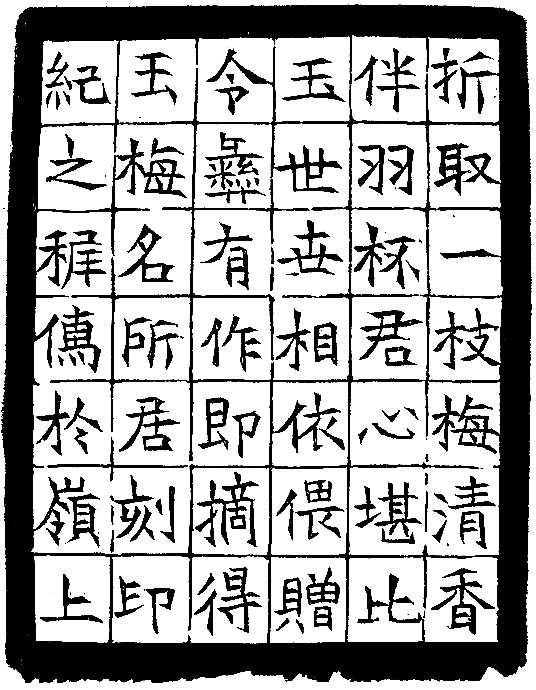 折取一枝梅清香
伴羽杯君心堪比
玉世世相依偎贈
令彝有作即摘得
玉梅名所居刻印
紀之稺於嶺上